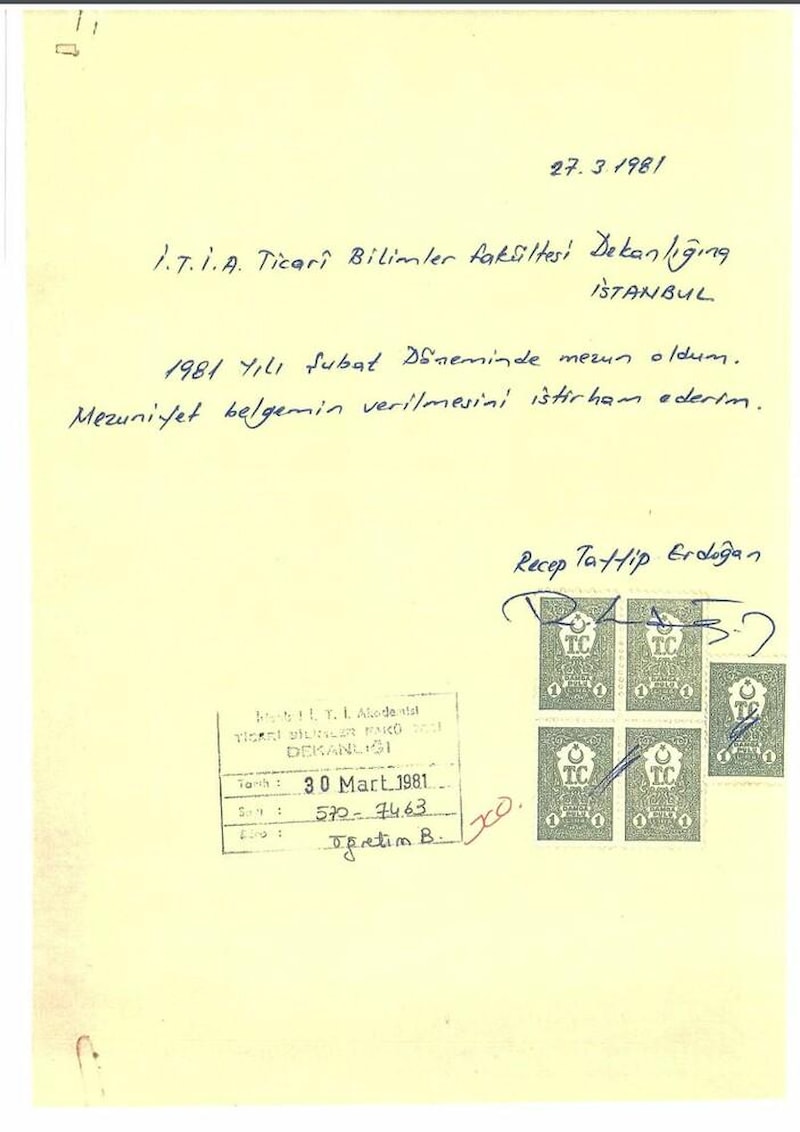 27.3.1981
İ.T.İ.A. Ticarî Bilimler Fakültesi Dekanlığına
İSTANBUL
1981 Yılı Şubat Döneminde mezun oldum.
Mezuniyet belgemin verilmesini istirham ederim.
Recep Tayyip Erdoğan
T.C
DAMGA
PULU
1 1
T.C
DAMGA
PULU
1 1
T.C
DAMGA
PULU
1 1
T.C
DAMGA
PULU
1 1
T.C
DAMGA
PULU
1 1
İ. T. İ. Akademisi
TİCARİ BİLİMLER
DEKANLIĞI
Tarih : 30 Mart 1981
Sayı : 570-7463
Büro : Öğretim B.